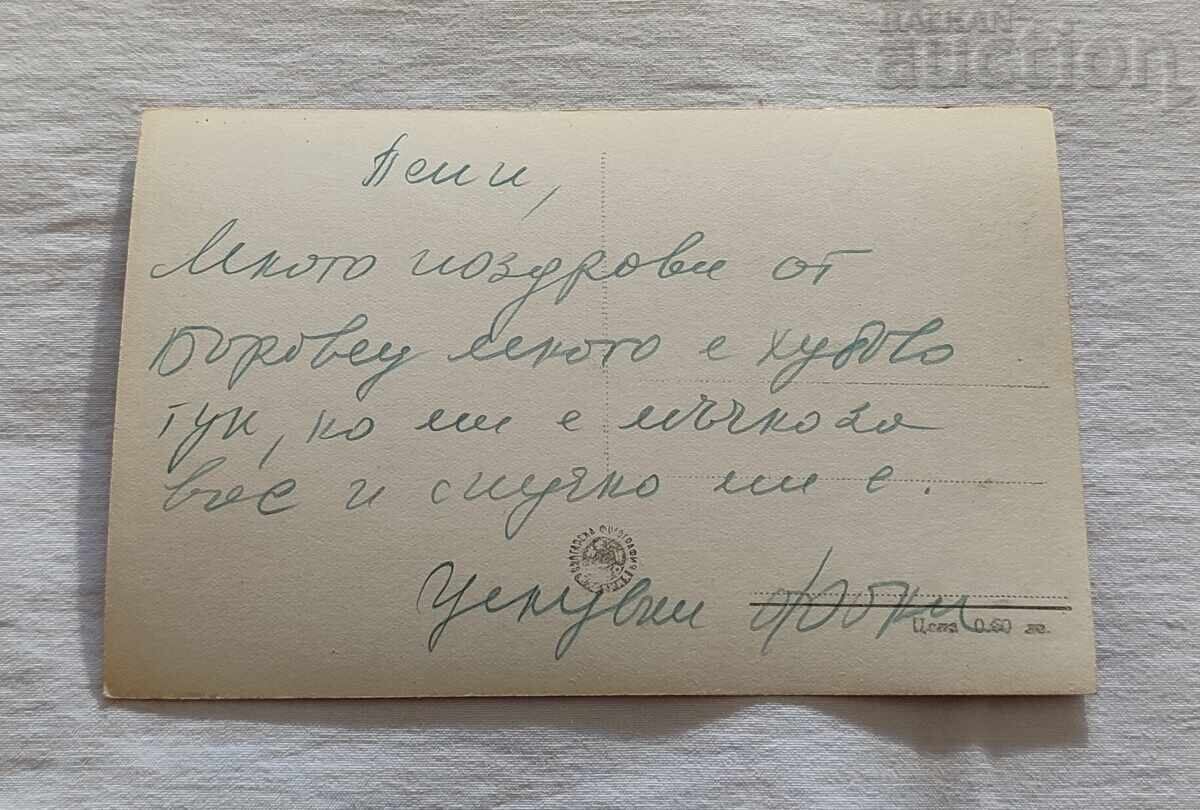 BALKAN
auction
Пепи,
Много поздрави от
Боровец много е хубаво
тук, но ми е мъчно за
вас и скучно ми е.
БЪЛГАРСКА ФОТОГРАФИЯ
Целувки
Цена 0.60 лв.